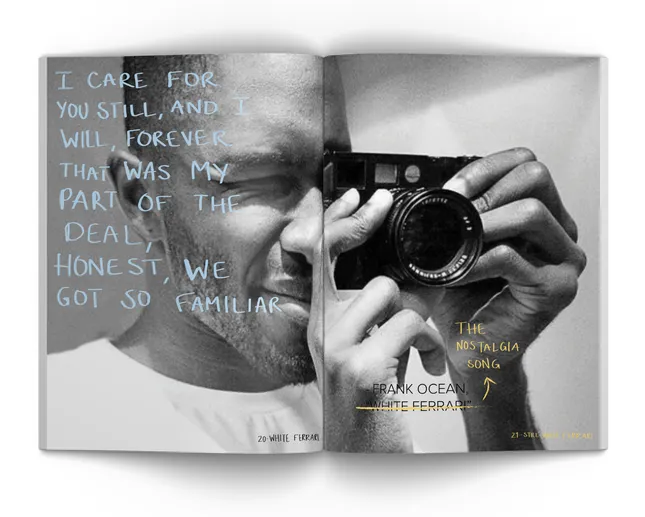 I CARE FOR
YOU STILL, AND I
WILL, FOREVER
THAT WAS MY
PART OF THE
DEAL,
HONEST, WE
GOT SO FAMILIAR
THE
NOSTALGIA
SONG
-FRANK OCEAN,
"WHITE FERRARI"
20-WHITE FERRARI
21-STILL WHITE FERRARI